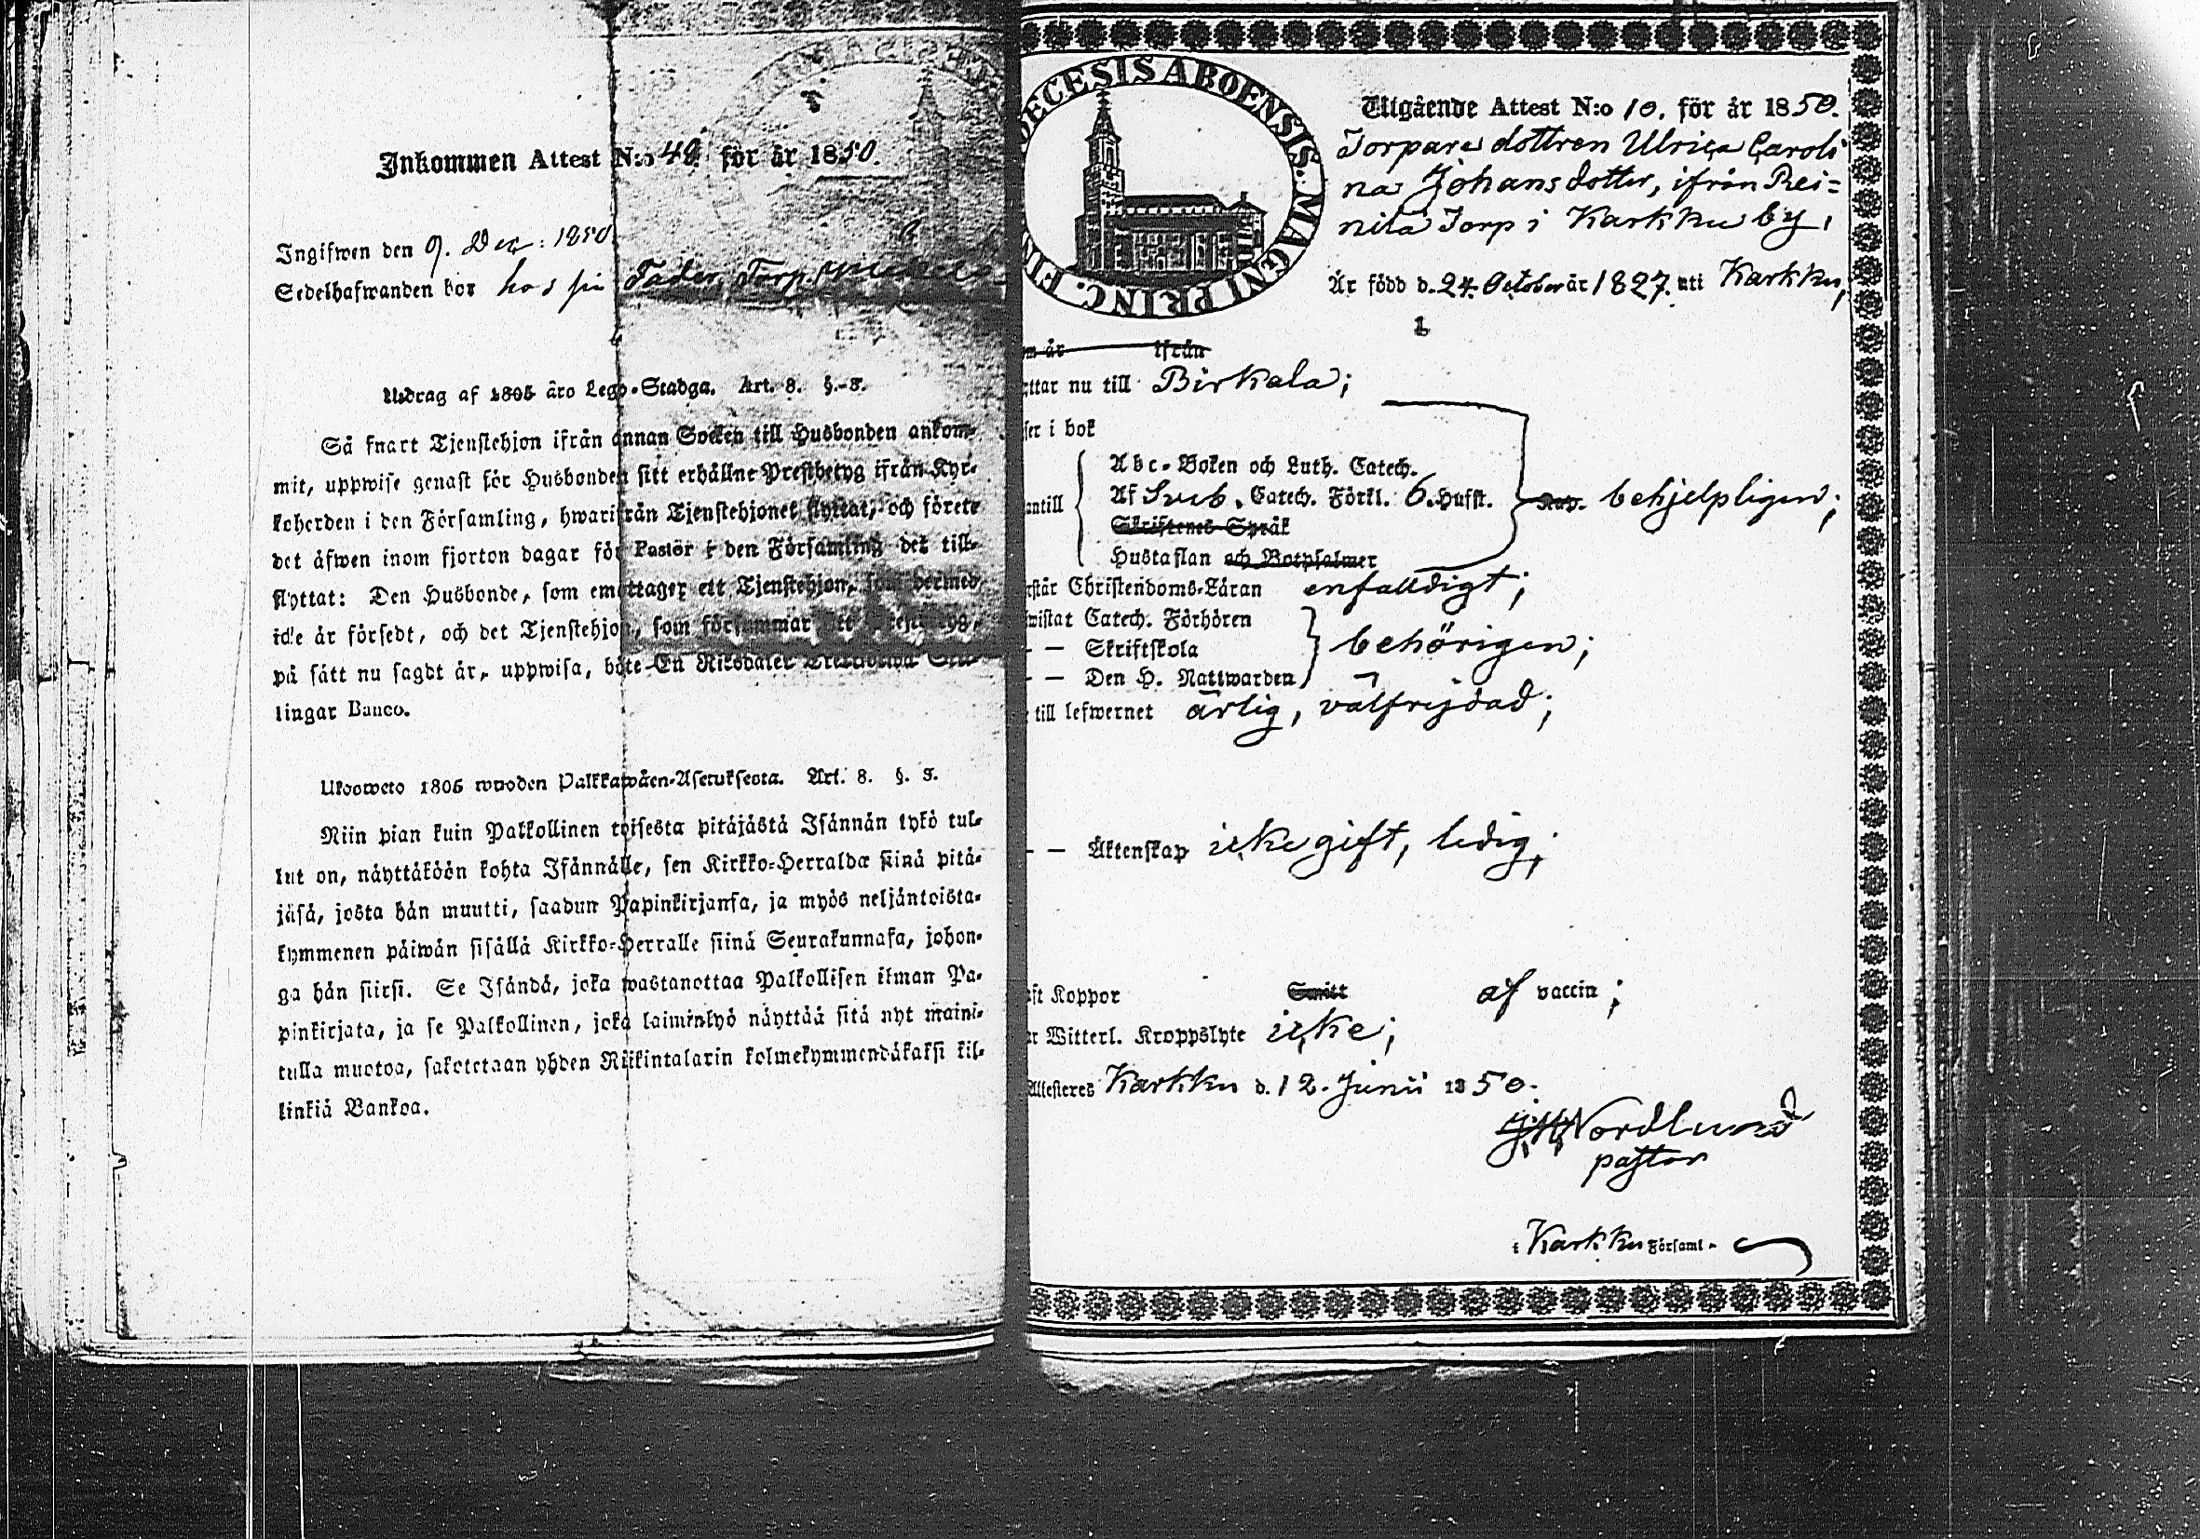 Inkommen Attest N:o 49. för år 1850.
Ingifwen den 9. Dec: 1850
Sedelhafwanden bor hos sin Fader, Torp.
Utdrag af 1805 års Lego-Stadga. Art. 8. §. 3.
Så snart Tjenstehjon ifrån annan Socken till Husbonden ankom-
mit, uppwise genast för Husbonden sitt erhållne Prestbetyg ifrån Kyr-
koherden i den Församling, hwarifrån Tjenstehjonet flyttat, och förete
det äfwen inom fjorton dagar för Pastor i den Församling det till-
flyttat: Den Husbonde, som emottager ett Tjenstehjon, som dermed
icke är försedt, och det Tjenstehjon, som försummar sitt Prestbetyg,
på sätt nu sagdt är, uppwisa, böte En Riksdaler Trettiotwå Skil-
lingar Banco.
Ulosweto 1805 wuoden Palkkawäen-Asetuksesta. Art. 8. §. 3.
Niin pian kuin Palkollinen toisesta pitäjästä Isännän tykö tul-
lut on, näyttäköön kohta Isännälle, sen Kirkko-Herralda siinä pitä-
jäsä, josta hän muutti, saadun Papinkirjansa, ja myös neljäntoista-
kymmenen päiwän sisällä Kirkko-Herralle siinä Seurakunnasa, johon-
ga hän siirsi. Se Isändä, joka wastanottaa Palkollisen ilman Pa-
pinkirjata, ja se Palkollinen, joka laiminlyö näyttää sitä nyt maini-
tulla muotoa, sakotetaan yhden Riikintalarin kolmekymmendäkaksi kil-
linkiä Bankoa.
DECESIS ABOENSIS. MAGNI PRINC. FIN
Utgående Attest N:o 10. för år 1850.
Torpare dottren Ulrica Caroli
na Johansdotter, ifrån Rei=
nilä Torp i Karkku by,
Är född d. 24. October år 1827. uti Karkku,
m år ifrån
ttar nu till Birkala;
ser i bok
Abc-Boken och Luth. Catech.
antill Af Sveb. Catech. Förkl. 6. Hufst. behjelpligen;
Skriftenes Språk
Hustaflan och Botpsalmer
rstår Christendoms-Läran enfalldigt;
wistat Catech. Förhören
- - Skriftskola behörigen;
- - Den H. Nattwarden
till lefwernet ärlig, välfrejdad;
- - Äktenskap icke gift, ledig;
ft Koppor Smitt af vaccin;
r Witterl. Kroppslyte icke;
Attesteres Karkku d. 12. Junii 1850.
Nordlund
pastor
i Karkku Församl.